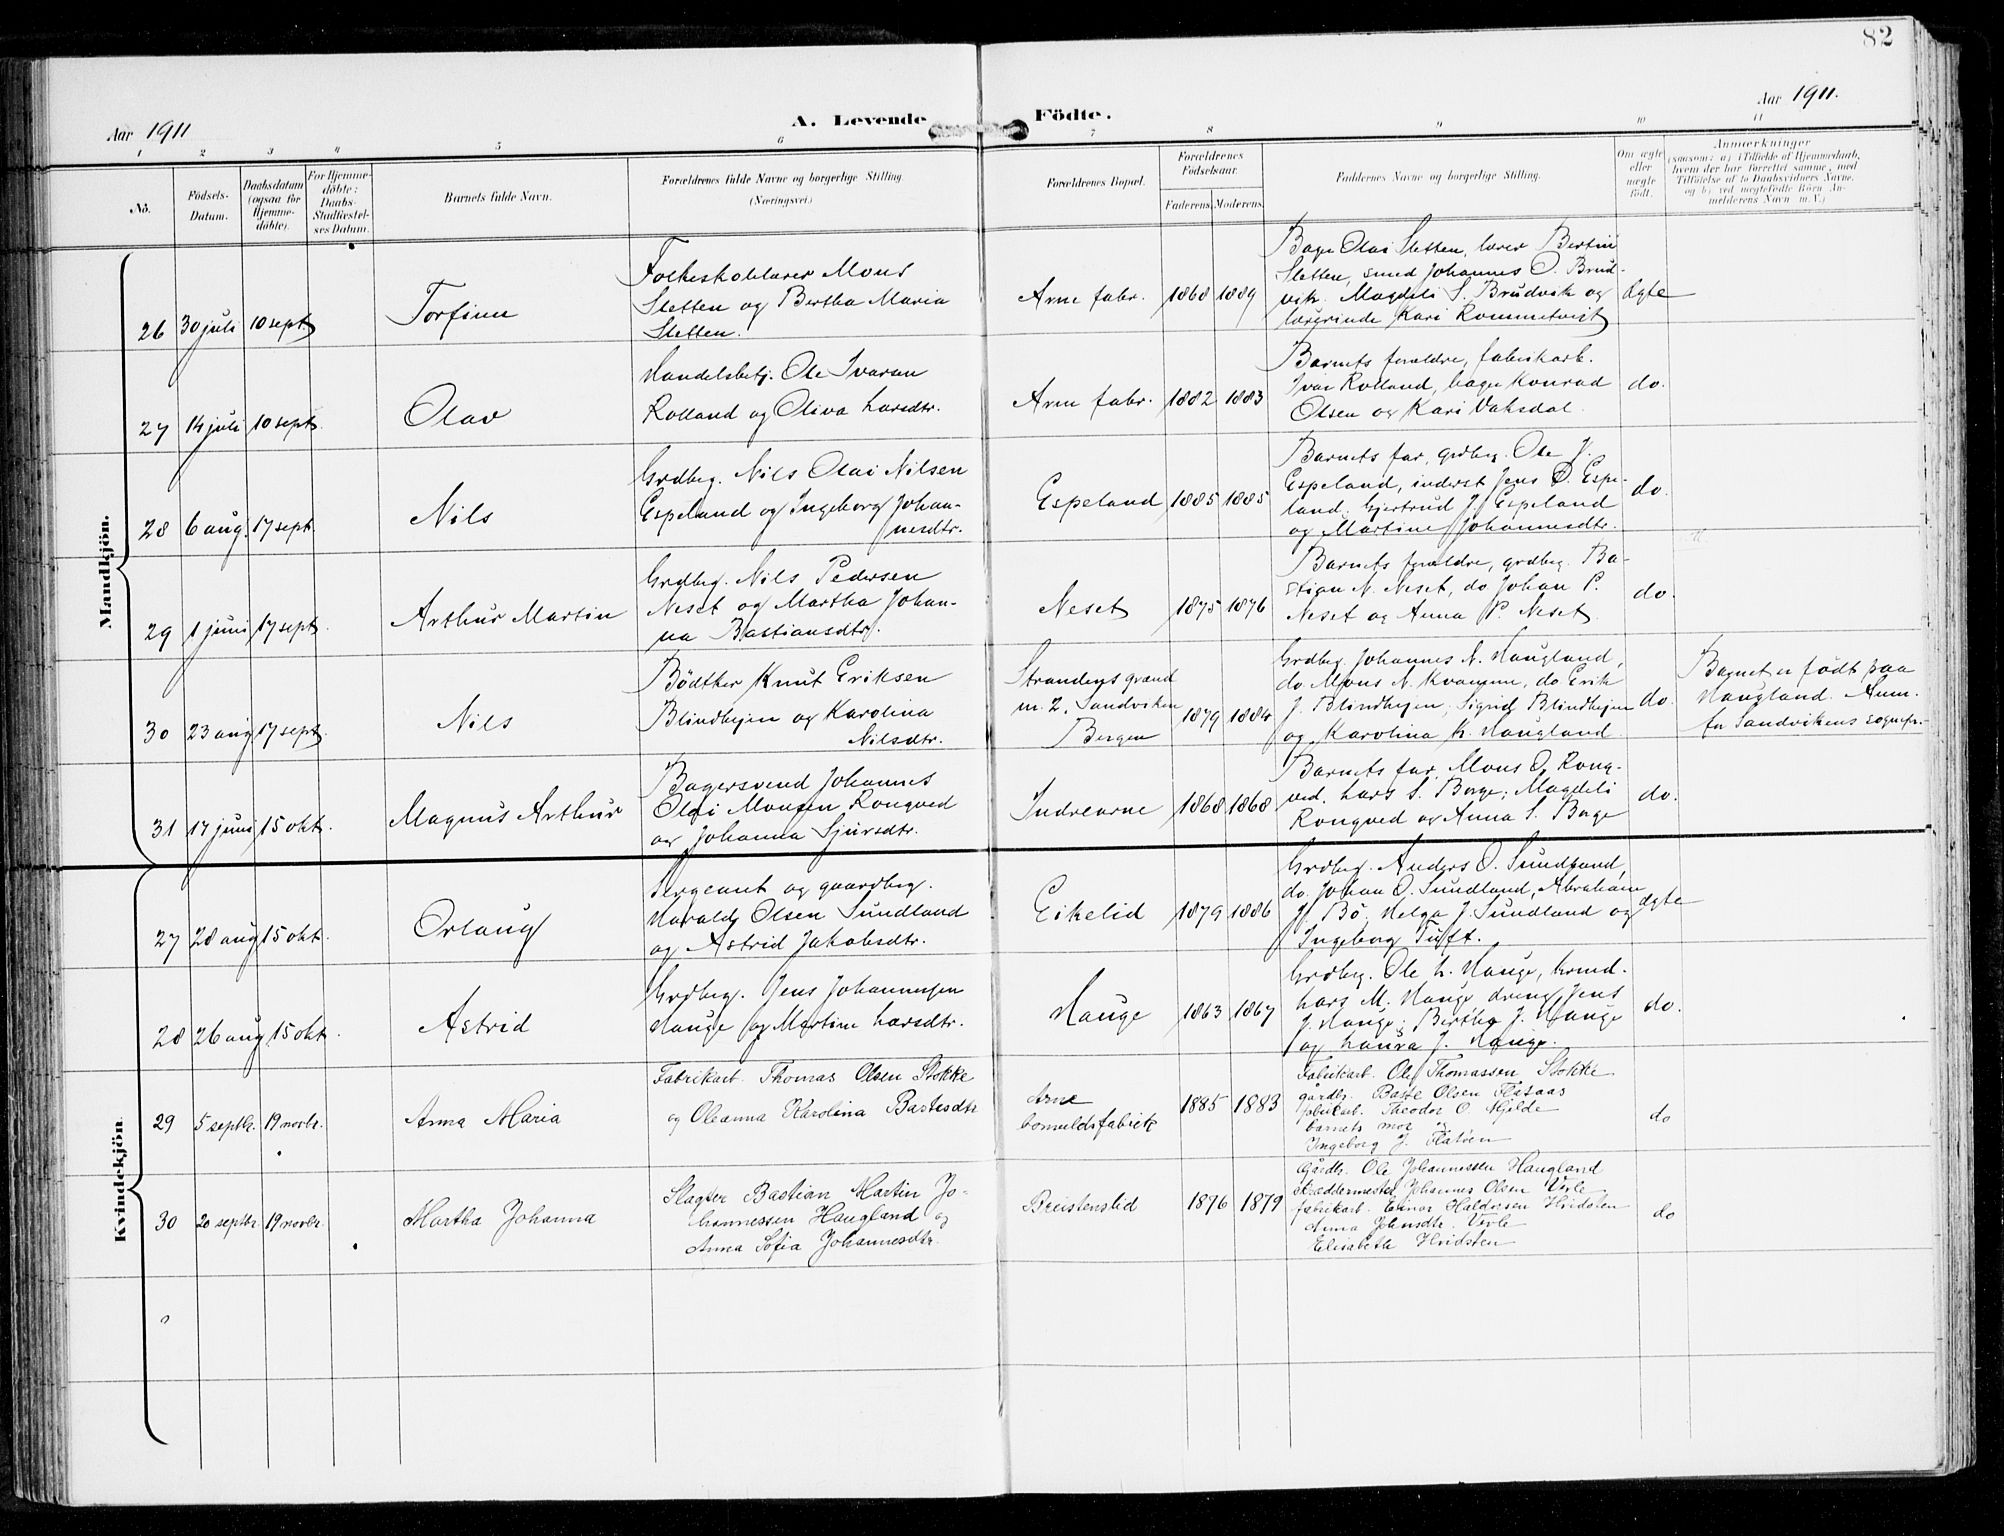 82
Aar 1911
A. Levende
Födte.
Aar 1911.
1 2 3 4 5 6 7 8 9 10 11
No.
Födsels-
Datum.
Daabsdatum
(ogsaa for
Hjemme-
döbte).
For Hjemme-
döbte:
Daabs-
Stadfæstel-
ses Datum.
Barnets fulde Navn.
Forældrenes fulde Navne og borgerlige Stilling.
(Næringsvei)
Forældrenes Bopæl.
Forældrenes
Födselsaar.
Faderens. Moderens.
Faddernes Navne og borgerlige Stilling.
Om ægte
eller
uægte
födt.
Anmærkninger
(saasom: a) i Tilfælde af Hjemmedaab,
hvem der har forrettet samme, med
Tilföielse af to Daabsvidners Navne,
og b) ved uægtefödte Börn An-
melderens Navn m.V.)
Mandkjön.
26 30 juli 10 sept.
Torfinn
Folkeskolelærer Mons
Sletten og Bertha Maria
Sletten.
Arne fabr. 1868 1889
Bager Olai Sletten, lærer Bertin
Sletten, smed Johannes O. Brud-
vik. Magdeli S. Brudvik og
lærerinde Kari Rommetveit
ægte
27 14 juli 10 sept.
Olav
Handelsbetj. Ole Ivarsen
Rolland og Oliva Larsdtr.
Arne fabr. 1882 1883
Barnets forældre, fabrikarb.
Ivar Rolland, bager Konrad
Olsen og Kari Vaksdal.
do.
28 6 aug. 17 sept.
Nils
Grdbrg. Nils Olai Nilsen
Espeland og Ingeborg Johan-
nesdtr.
Espeland 1885 1885
Barnets far, grdbrg. Ole J.
Espeland, inderst Jens O. Espe-
land. Gjertrud J. Espeland
og Martine Johannesdtr.
do.
29 1 juni 17 sept.
Arthur Martin
Grdbrg. Nils Pedersen
Neset og Martha Johan-
na Bastiansdtr.
Neset 1875 1876
Barnets forældre, grdbrg. Ba-
stian N. Neset, do Johan P.
Neset og Anna P. Neset.
do.
30 23 aug 17 sept.
Nils
Bödtker Knut Eriksen
Blindhejen og Karolina
Nilsdtr.
Strandens grænd
nr. 2. Sandviken
Bergen
1879 1884
Grdbrg. Johannes N. Haugland,
do. Mons N. Kvamme, do Erik
J. Blindhejen, Sigrid Blindhejen
og Karolina K. Haugland
do.
Barnet er födt paa
Haugland. Anm.
fra Sandvikens sognepr.
31 17 juni 15 okt.
Magnus Arthur
Bagersvend Johannes
Olai Monsen Rongved
og Johanna Sjursdtr.
Indrearne 1868 1868
Barnets far, Mons O. Rong-
ved. Lars S. Borge; Magdeli
Rongved og Anna S. Borge
do.
Kvindekjön.
27 28 aug 15 okt.
Orlaug
Sergeant og gaardbrg.
Harald Olsen Sundland
og Astrid Jakobsdtr.
Eikelid 1879 1886
Grdbrg. Anders O. Sundland,
do. Johan O. Sundland, Abraham
H. Bö, Helga J. Sundland og
Ingeborg Tuft.
ægte
28 26 aug 15 okt.
Astrid
Grdbrg. Jens Johannesen
Hauge og Martine Larsdtr.
Hauge 1863 1867
Grdbrg. Ole L. Hauge,
Lars M. Hauge dreng Jens
J. Hauge; Bertha J. Hauge
og Laura J. Hauge.
do.
29 5 septbr. 19 novbr.
Anna Maria
Fabrikarb. Thomas Olsen Stokke
og Oleanna Karolina Bastesdtr
Arne
bomuldsfabrik
1885 1883
Fabrikarb. Ole Thomassen Stokke
gårdbr. Baste Olsen Flataas
fabrikarb. Theodor O. Mjelde
barnets mor og
Ingeborg J. Flatöen
do
30 20 septbr. 19 novbr.
Martha Johanna
Slagter Bastian Martin Jo-
hannessen Haugland og
Anna Sofia Johannesdtr.
Breistenslid 1876 1879
Gårdbr. Ole Johannessen Haugland
skreddermester Johannes Olsen Virle
fabrikarb. Einar Haldorsen Hvidsten
Anna Johnsdtr. Virle
Elisabeth Hvidsten
do